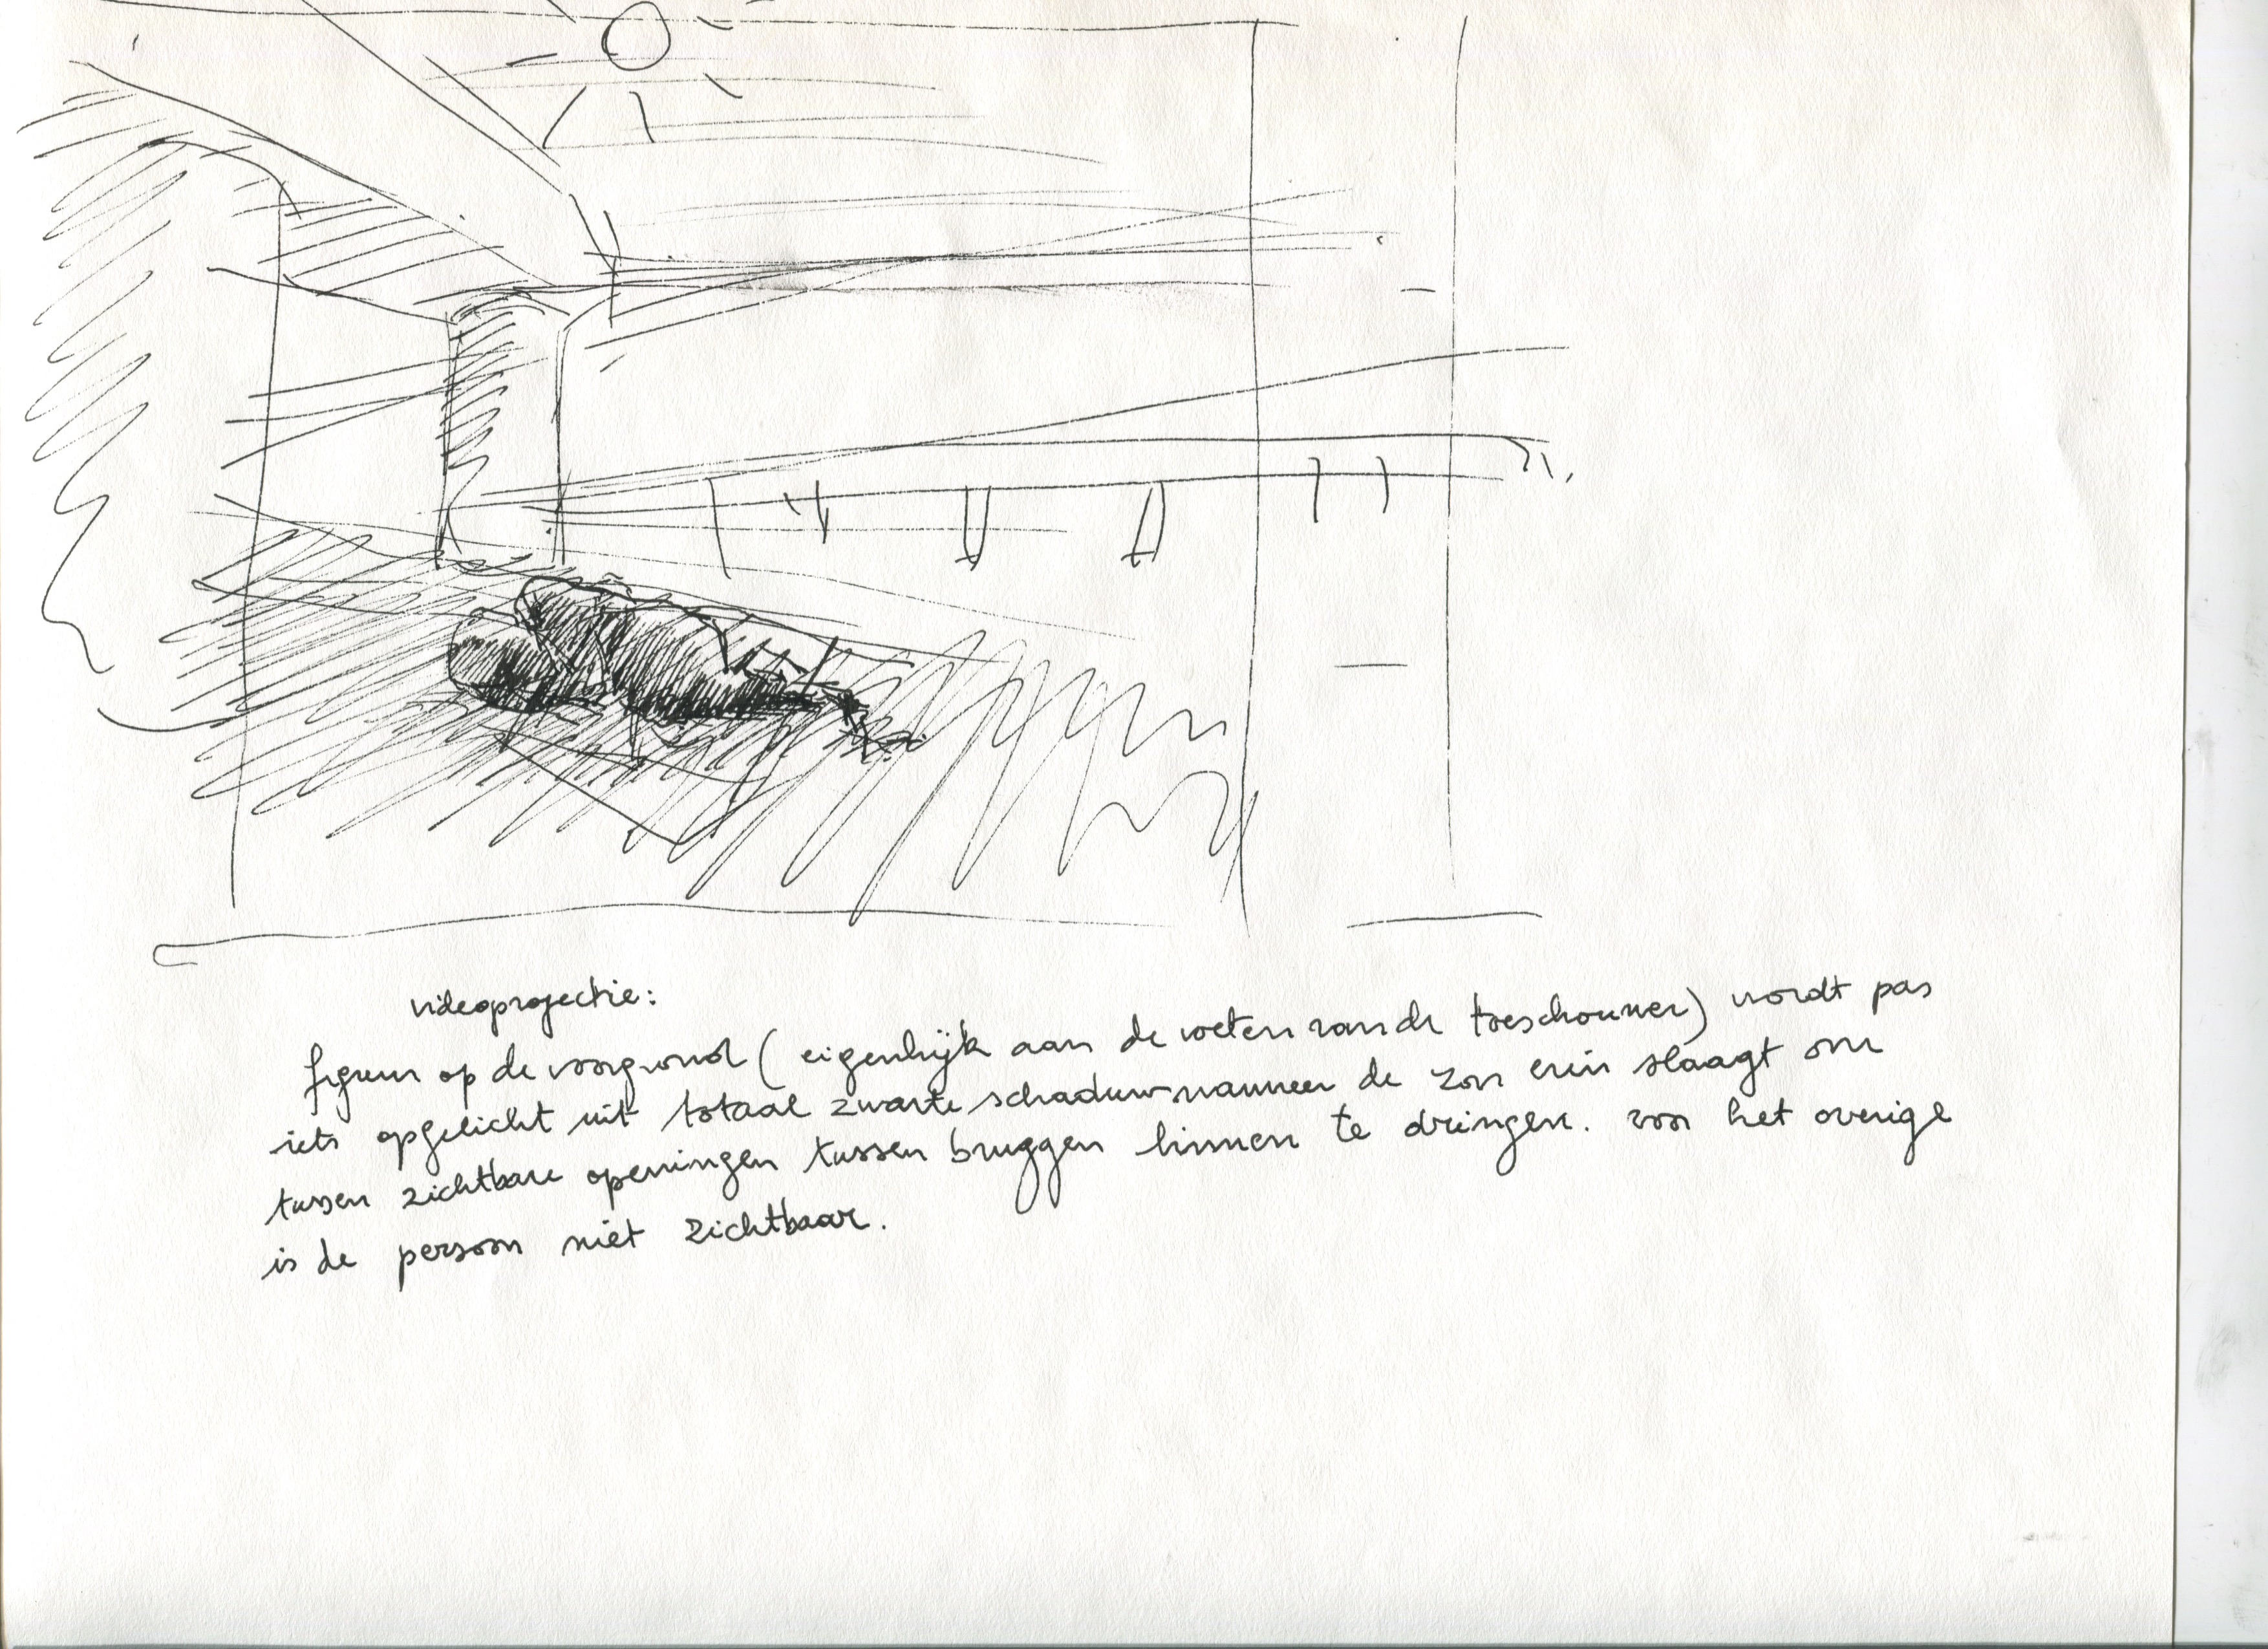 videoprojectie:
figuur op de voorgrond (eigenlijk aan de voeten van de toeschouwer) wordt pas
iets opgelicht uit totaal zwarte schaduw wanneer de zon erin slaagt om
tussen zichtbare openingen tussen bruggen binnen te dringen. voor het overige
is de persoon niet zichtbaar.